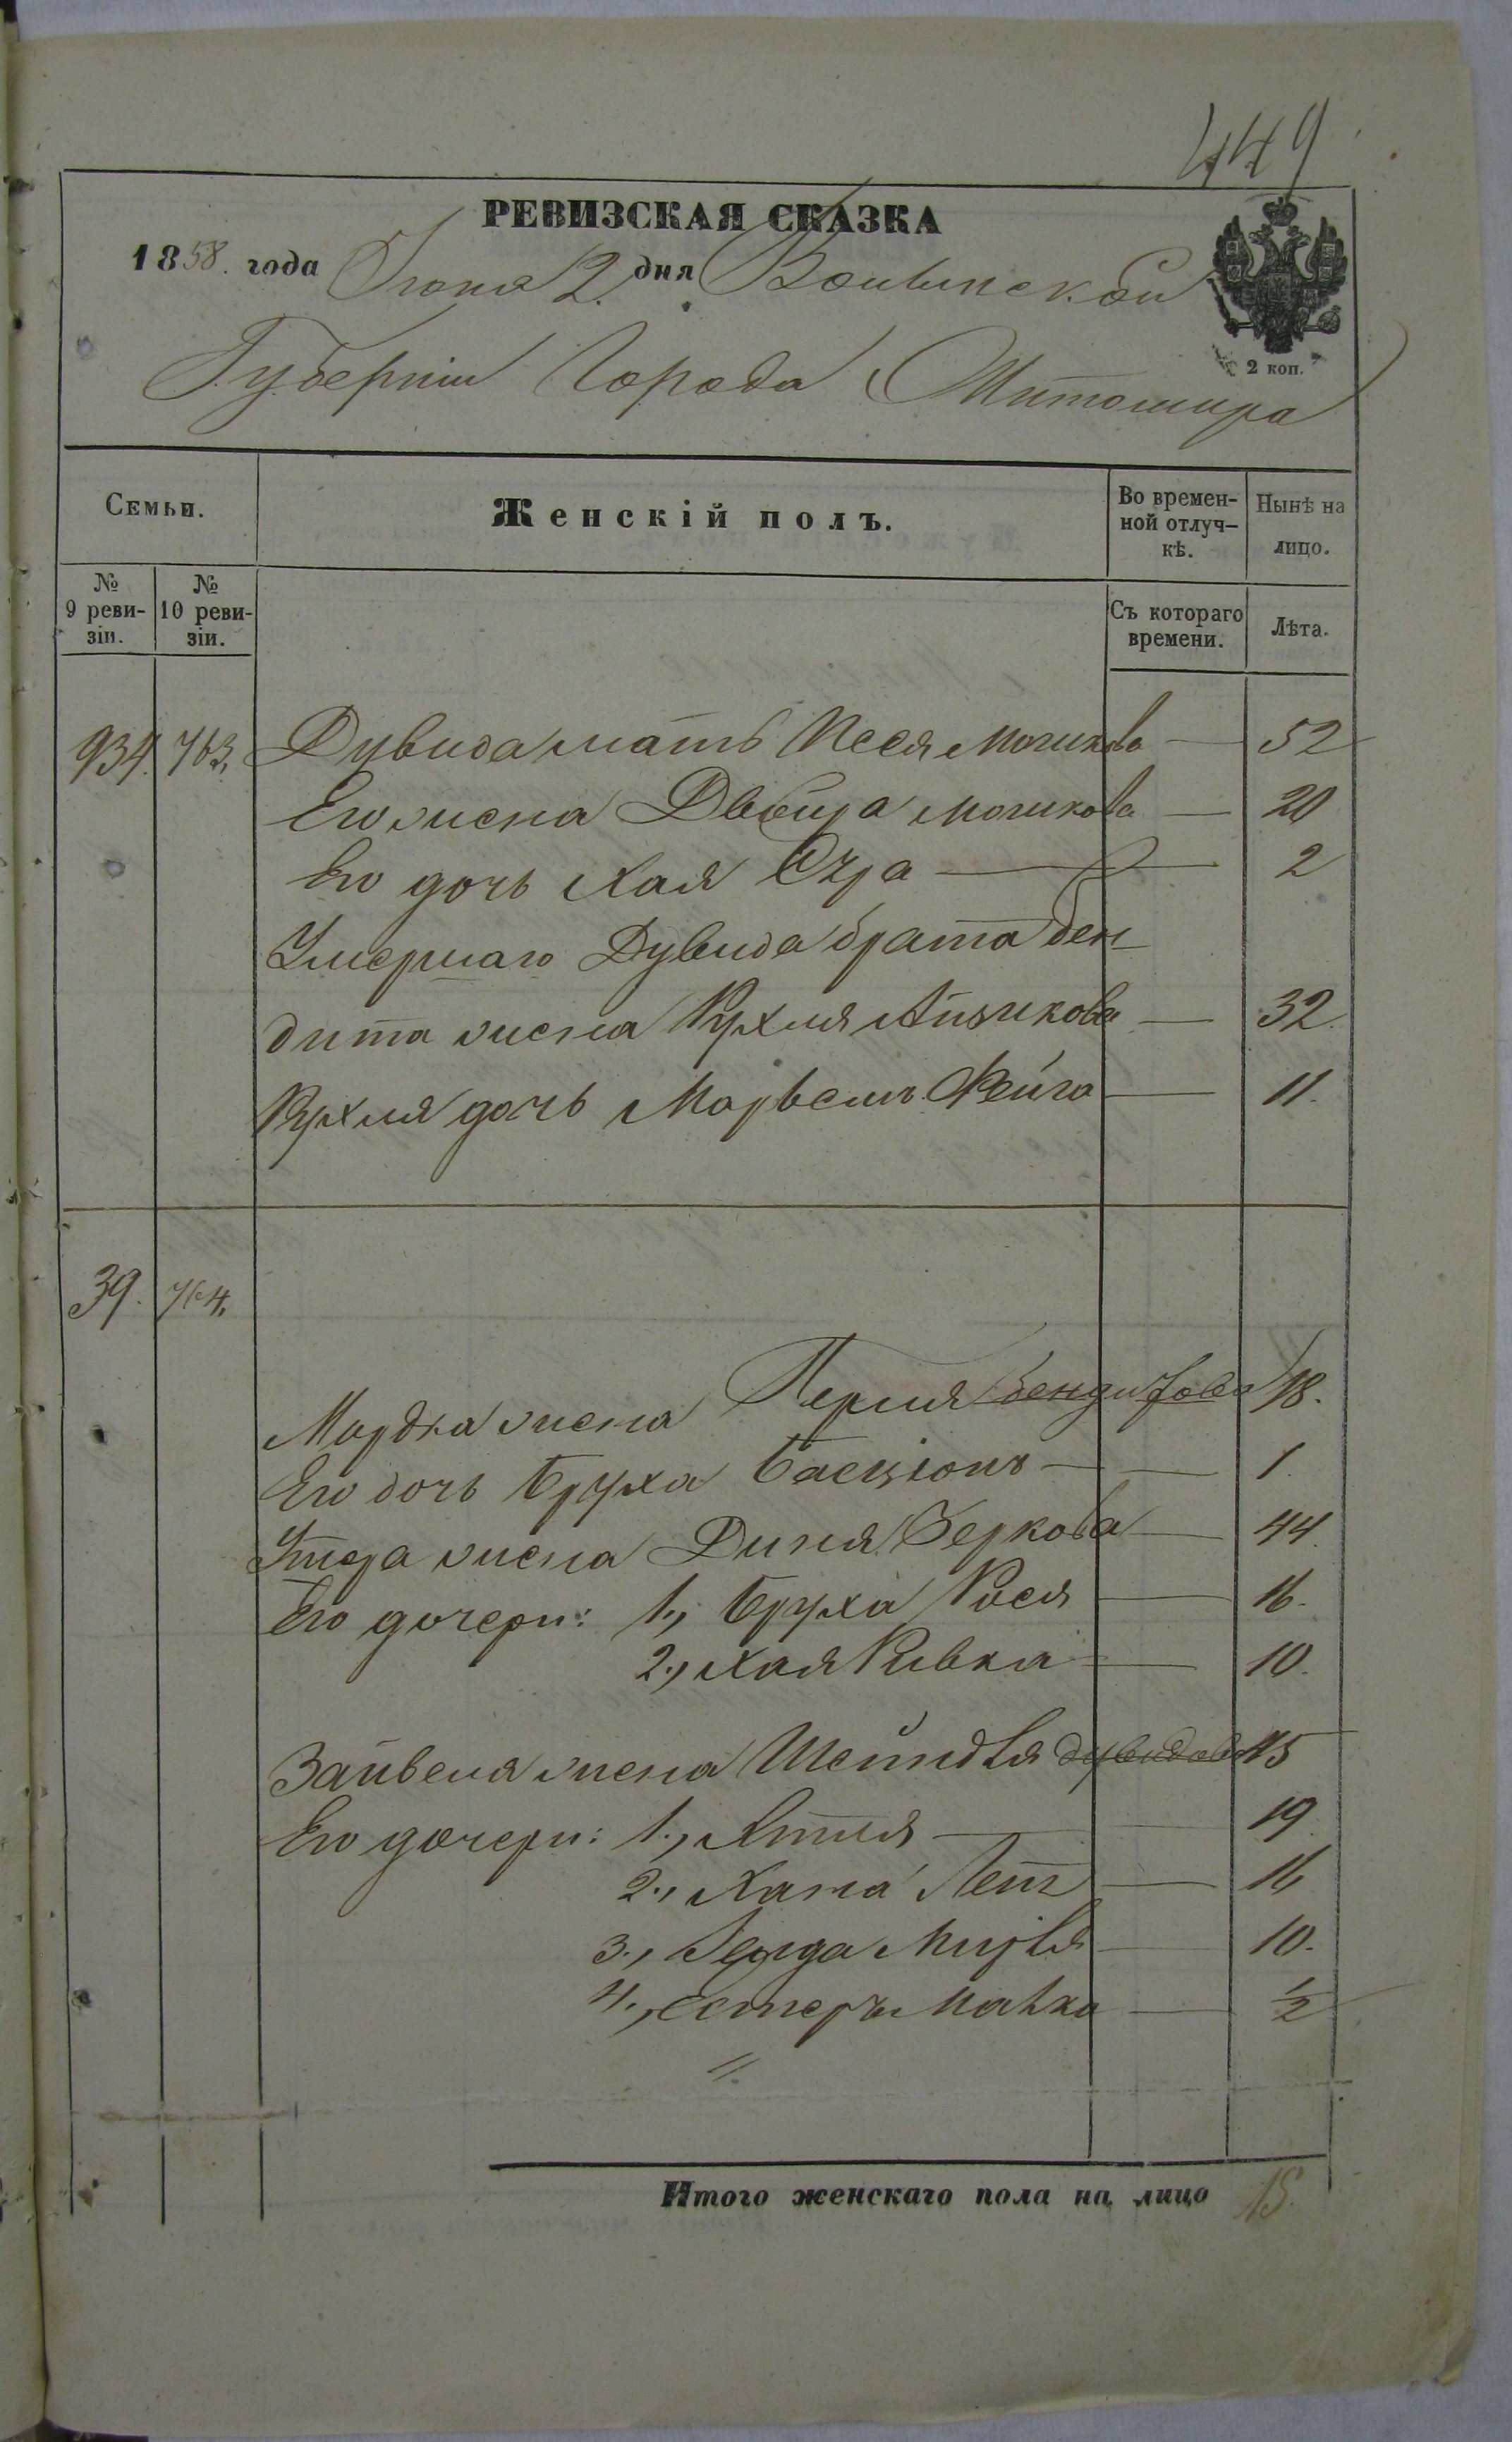 449
РЕВИЗСКАЯ СКАЗКА
1858. года Іюня 2. дня Волынской
Губерніи Города Житомира
2 коп.
Семьи.
Женскій полъ.
Во времен-
ной отлуч-
кѣ.
Нынѣ на
лицо.
№
9 реви-
зіи.
№
10 реви-
зіи.
Съ котораго
времени.
Лѣта.
934. 763, Дувида мать Песя Мошкова — 52
Его жена Двойра Мошкова — 20
Его дочь Хая Сура — 2
Умершаго Дувида брата Бен-
дита жена Рухля Айзикова — 32.
Рухля дочь Марьемъ Фейга — 11.
39. 764,
Мордка жена Перля Бендитова 18.
Его дочь Бруха Басціонъ — 1.
жена Диня Беркова — 44.
Его дочери: 1., Бруха Рося — 16.
2., Хая Ривка — 10.
Зайвеля жена Шейндля Дувидова 45
Его дочери: 1., — 19.
2., Хана — 16
3., Мирля — 10.
4., Естеръ Малка — 1/2
Итого женскаго пола на лицо 15.